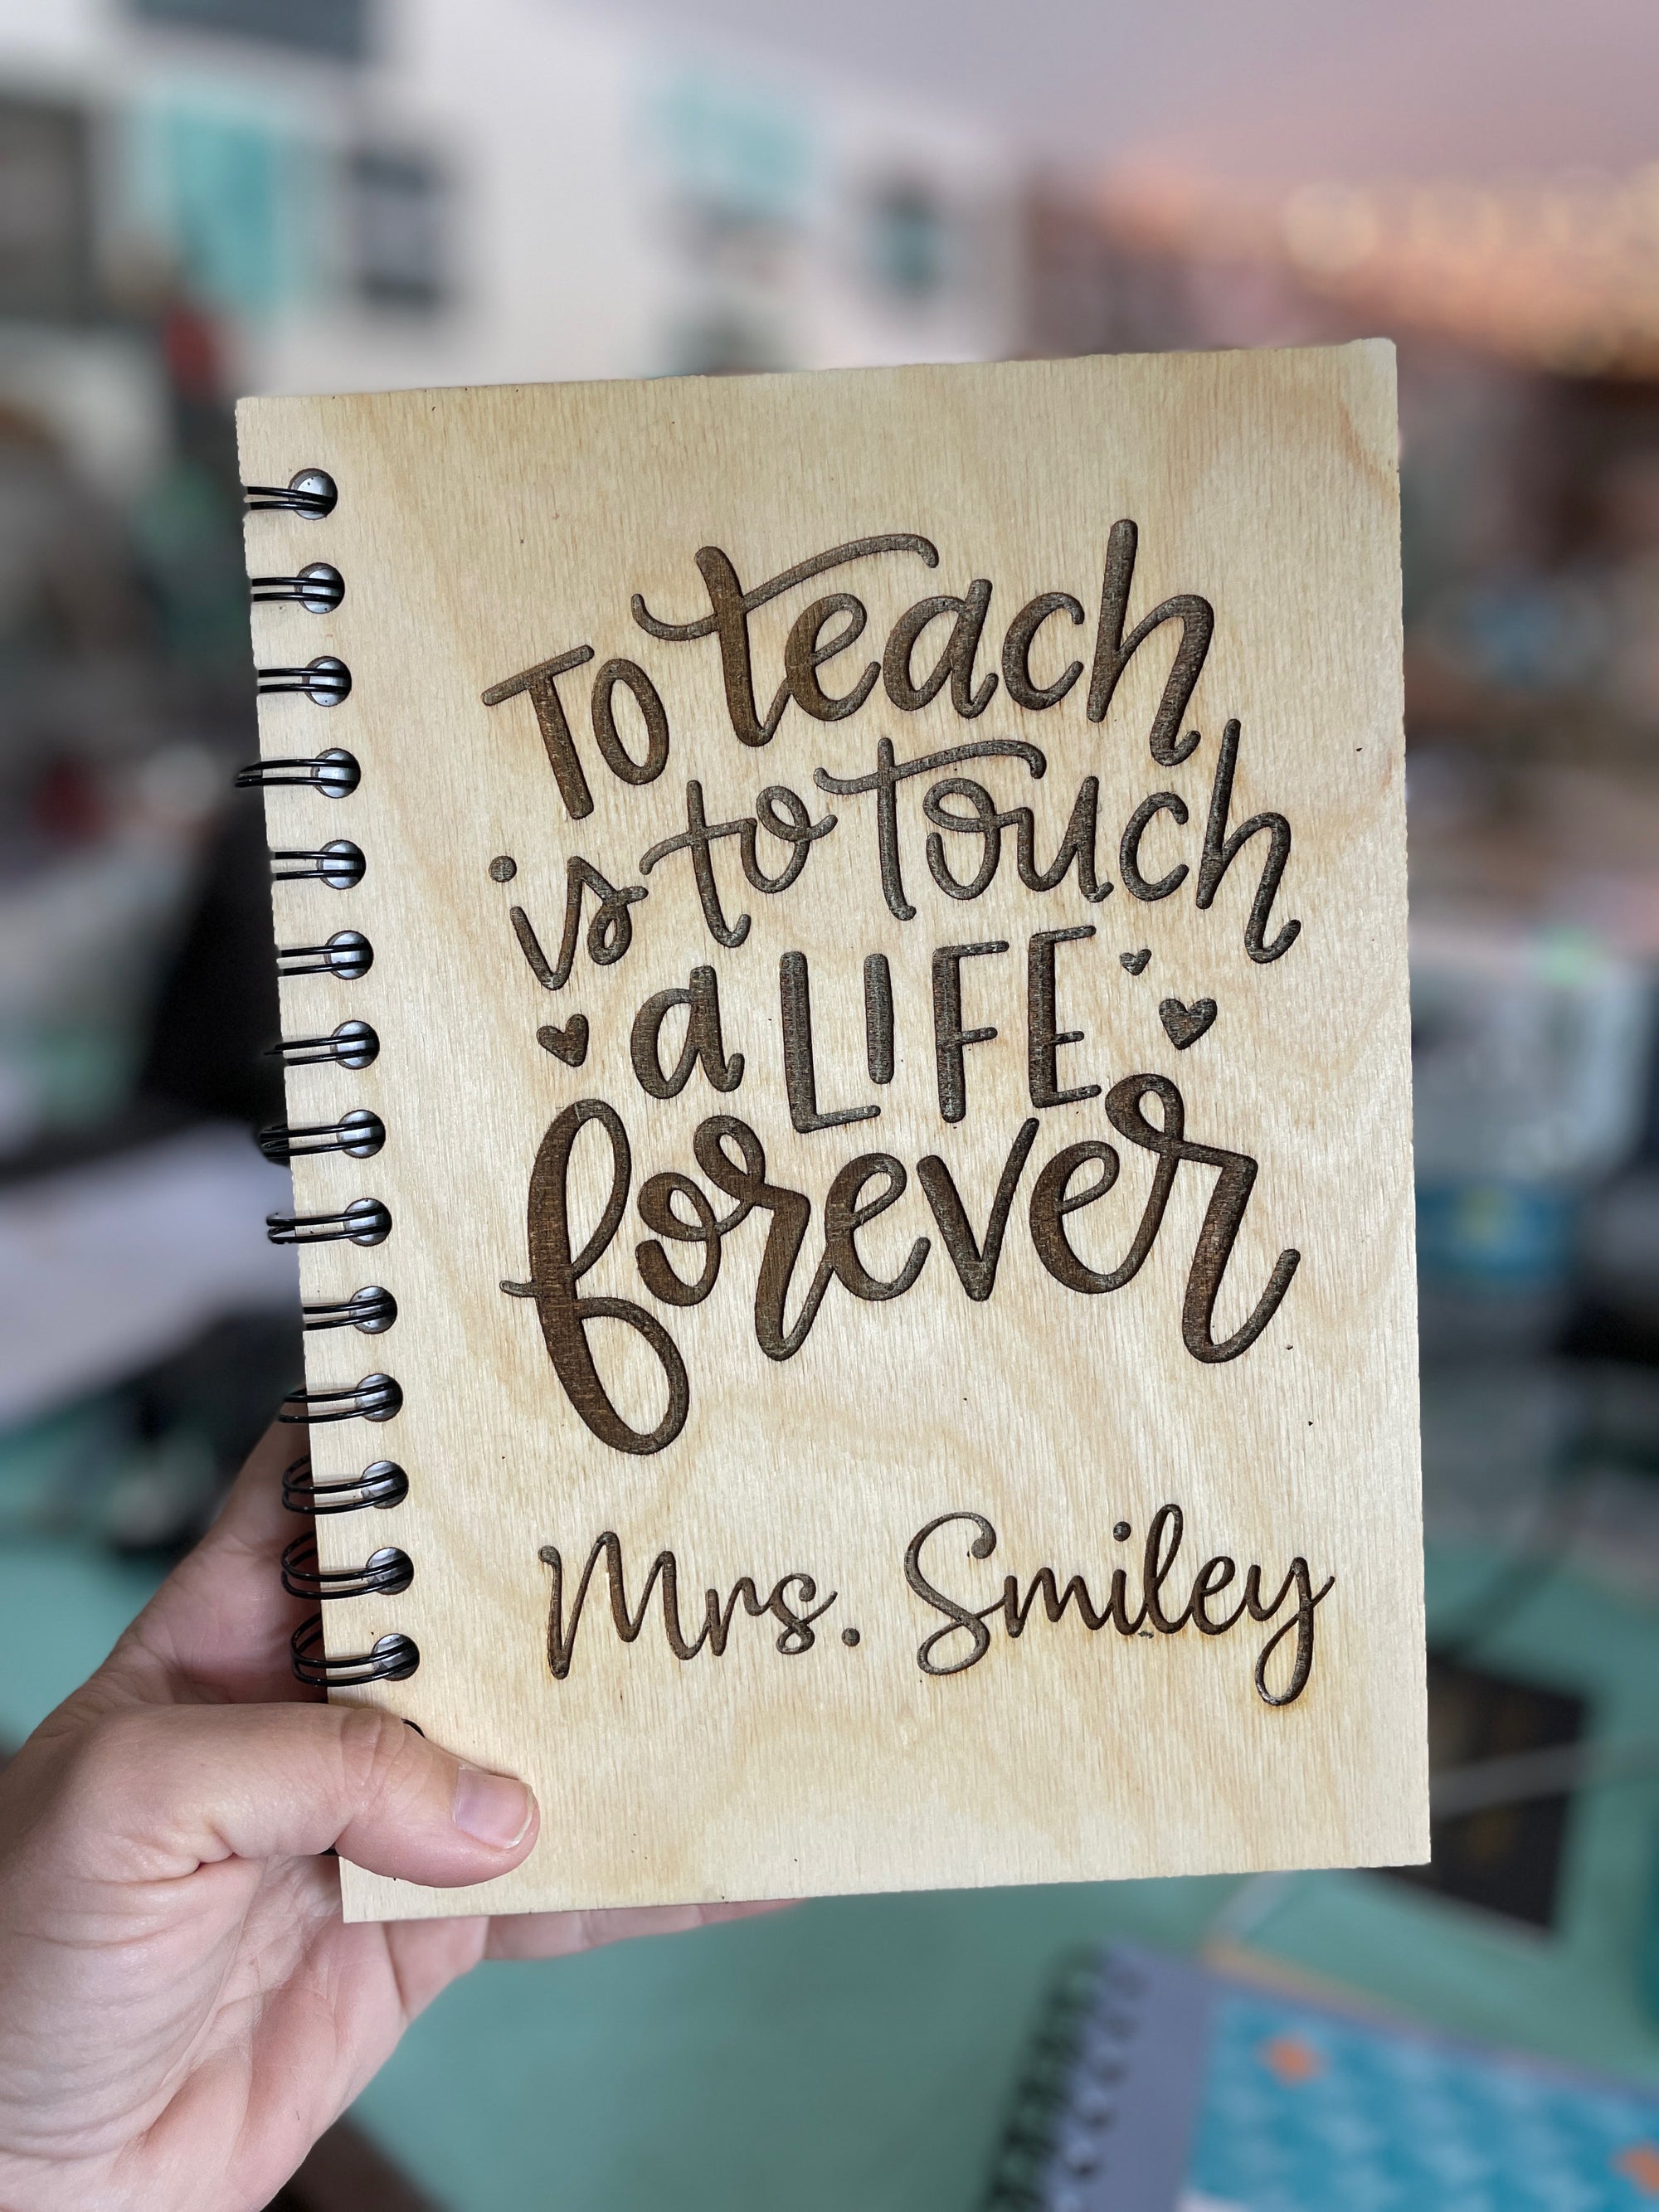 To teach
is to touch
a LIFE
forever
Mrs. Smiley